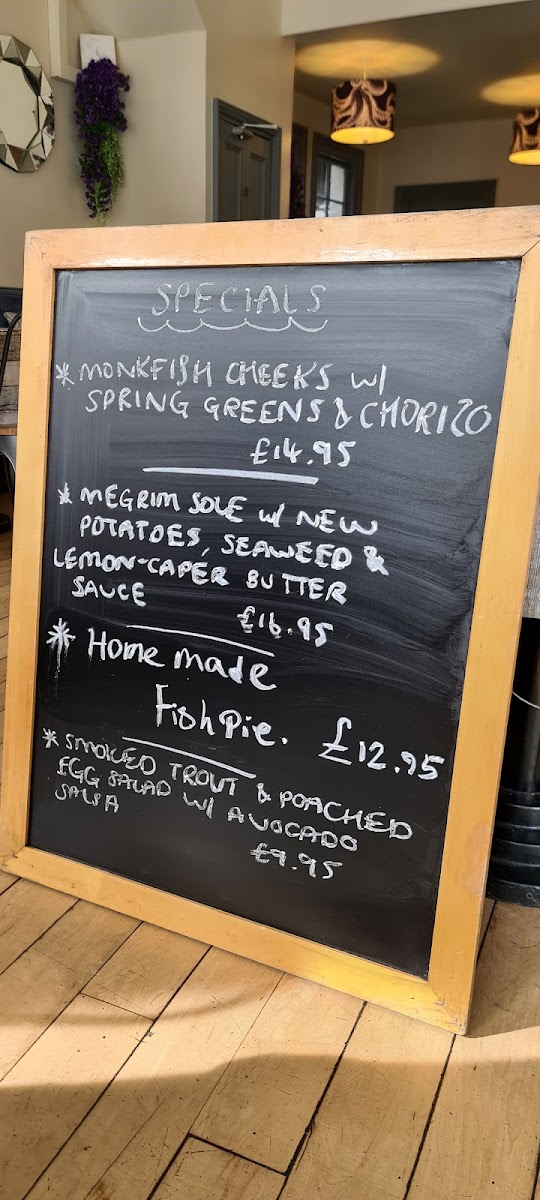 SPECIALS
* MONKFISH CHEEKS w/
SPRING GREENS & CHORIZO
£14.95
* MEGRIM SOLE w/ NEW
POTATOES, SEAWEED &
LEMON-CAPER BUTTER
SAUCE £16.95
* Home made
Fish Pie. £12.95
* SMOKED TROUT & POACHED
EGG SALAD w/ AVOCADO
SALSA
£9.95